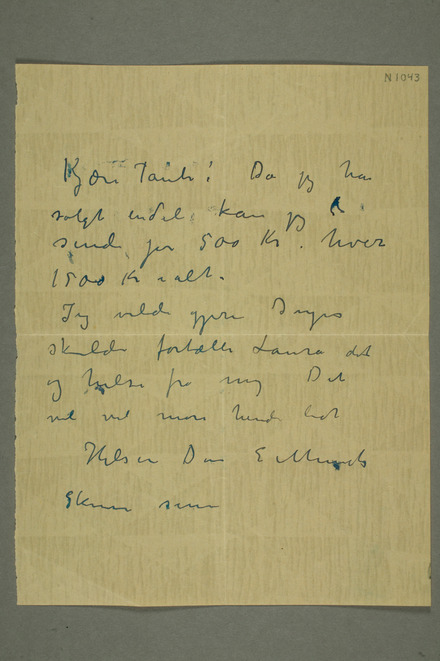 N 1043
Kjære Tante! Da jeg har
solgt endel, kan jeg
sende jer 500 Kr. hver
1500 Kr ialt.
Jeg vilde gjerne Inger
skulde fortælle Laura det
og hilse fra mig Det
vil vel more hende lidt
Hilsen Din E Munch
Skriv snart